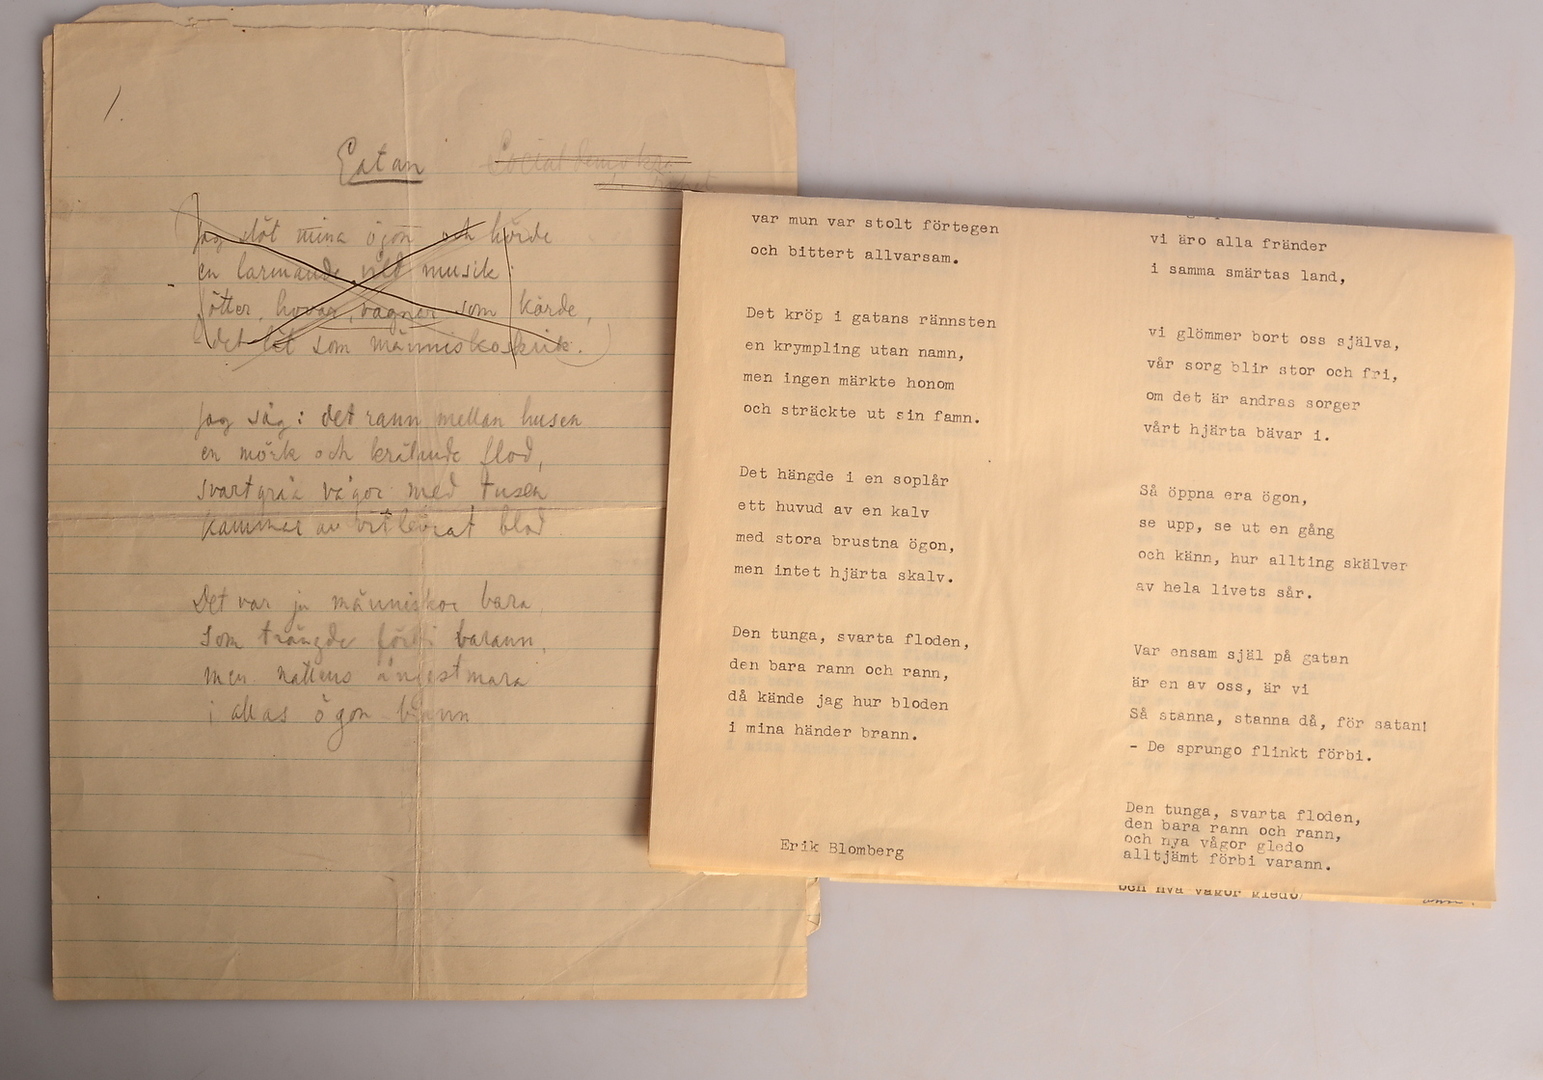 1.
Gatan
Socialdemokra
Jag slöt mina ögon och hörde
en larmande, vild musik:
fötter, hovar, vagner som körde,
det lät som människoskrik.
Jag såg: det rann mellan husen
en mörk och krälande flod,
svartgråa vågor med tusen
kammar av vitlevrat blod
Det var ju människor bara,
som trängde förbi varann,
men nattens ångestmara
i allas ögon brann
var mun var stolt förtegen
och bittert allvarsam.
Det kröp i gatans rännsten
en krympling utan namn,
men ingen märkte honom
och sträckte ut sin famn.
Det hängde i en soplår
ett huvud av en kalv
med stora brustna ögon,
men intet hjärta skalv.
Den tunga, svarta floden,
den bara rann och rann,
då kände jag hur bloden
i mina händer brann.
Erik Blomberg
vi äro alla fränder
i samma smärtas land,
vi glömmer bort oss själva,
vår sorg blir stor och fri,
om det är andras sorger
vårt hjärta bävar i.
Så öppna era ögon,
se upp, se ut en gång
och känn, hur allting skälver
av hela livets sår.
Var ensam själ på gatan
är en av oss, är vi
Så stanna, stanna då, för satan!
- De sprungo flinkt förbi.
Den tunga, svarta floden,
den bara rann och rann,
och nya vågor gledo
alltjämt förbi varann.
och nya vågor gledo